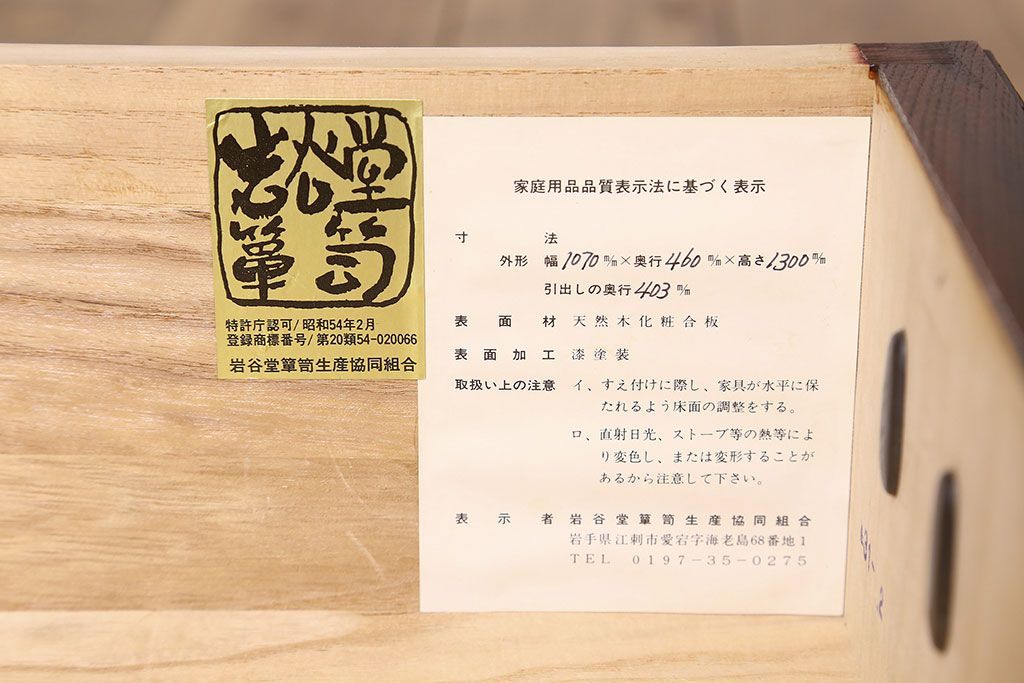 岩谷堂
簞笥
特許庁認可/昭和54年2月
登録商標番号/第20類54-020066
岩谷堂簞笥生産協同組合
家庭用品品質表示法に基づく表示
寸法
外形 幅1070m/m×奥行460m/m×高さ1300m/m
引出しの奥行403m/m
表面材 天然木化粧合板
表面加工 漆塗装
取扱い上の注意 イ、すえ付けに際し、家具が水平に保
たれるよう床面の調整をする。
ロ、直射日光、ストーブ等の熱等によ
り変色し、または変形することが
あるから注意して下さい。
表示者 岩谷堂簞笥生産協同組合
岩手県江刺市愛宕字海老島68番地1
TEL 0197-35-0275